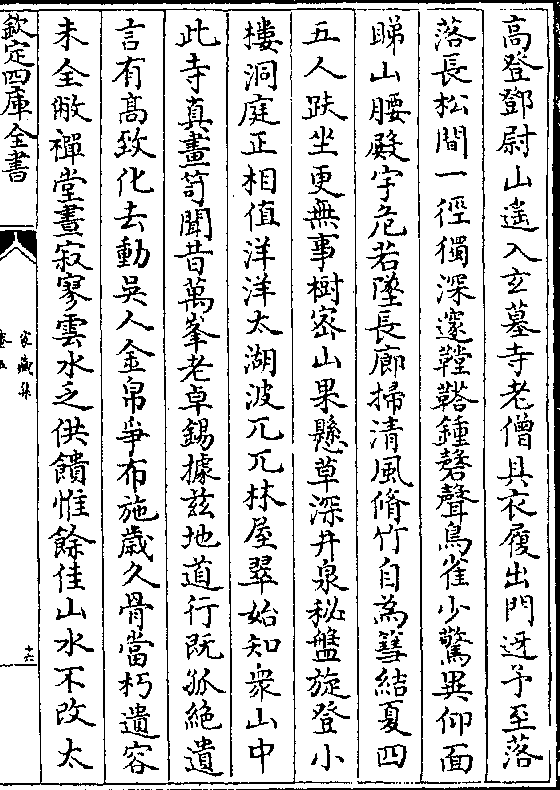 高登鄧尉山遙入玄墓寺老僧具衣履出門迓予至落
落長松間一徑獨深邃鞺鞳鍾磬聲鳥雀少驚異仰面
睇山腰殿宇危若墜長廊掃清風脩竹自為篲結夏四
五人趺坐更無事樹密山果懸草深井泉秘盤旋登小
樓洞庭正相值洋洋太湖波兀兀林屋翠始知衆山中
此寺真畫笥聞昔萬峯老卓錫據兹地道行既孤絶遺
言有髙致化去動吳人金帛爭布施歲久骨當朽遺容
未全敝禪堂晝寂寥雲水乏供饋惟餘佳山水不改太
欽定四庫全書
家藏集
卷五
十六